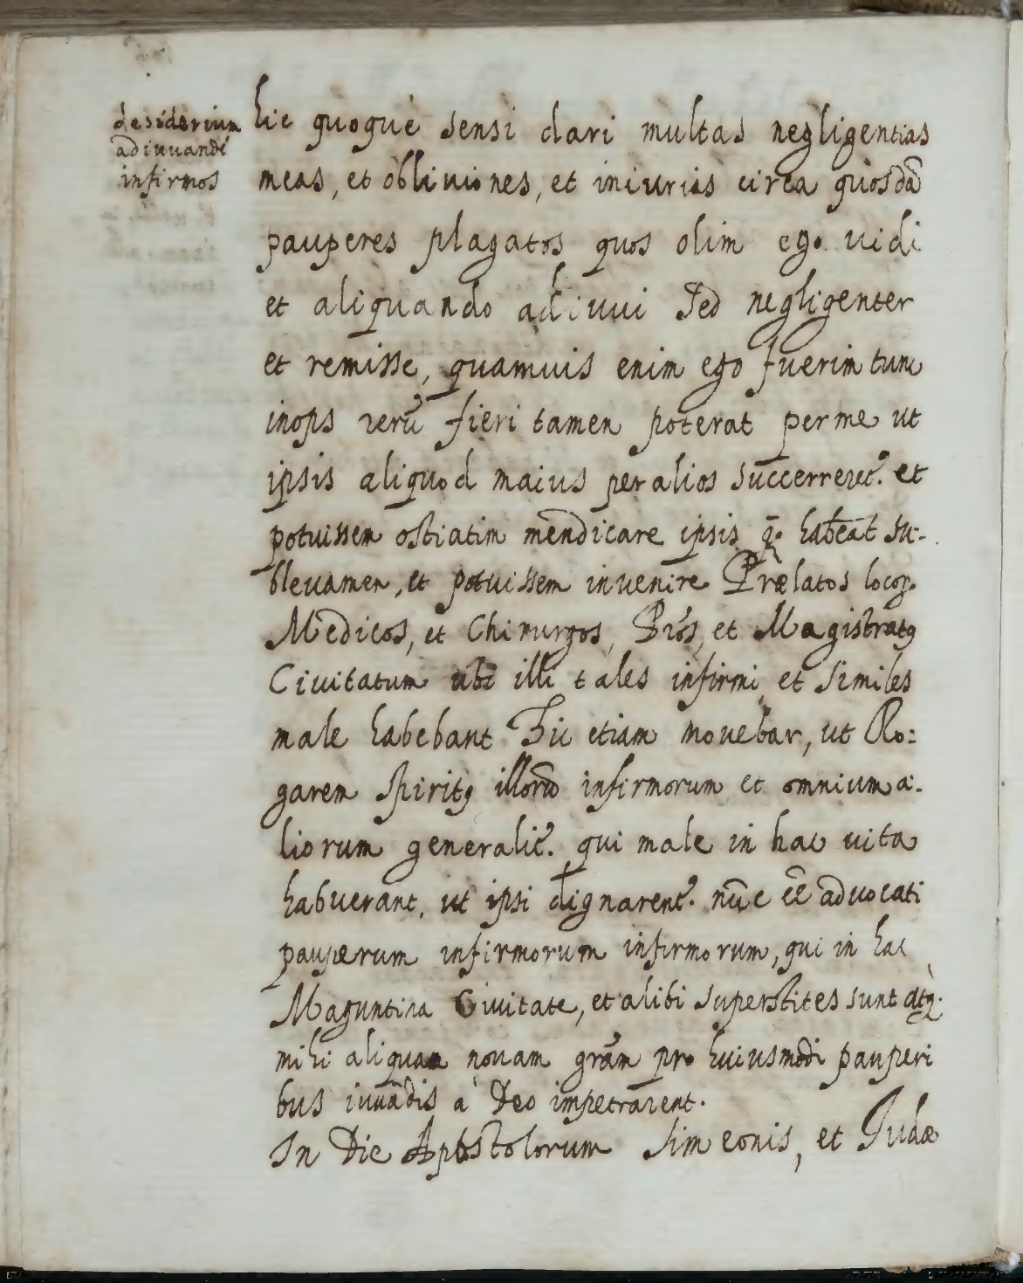 desiderium
adiuuandi
infirmos
hic quoquè sensi clari multas negligentias
meas, et obliuiones, et iniurias circa quosdā
pauperes plagatos quos olim ego uidi
et aliquando adiuui sed negligenter
et remisse, quamuis enim ego fuerim tunc
inops verū fieri tamen poterat per me ut
ipsis aliquod maius per alios succerreret. et
potuissem ostiatim mendicare ipsis habeāt su-
bleuamen, et potuissem inuenire Prælatos locoꝝ
Medicos, et Chirurgos, et Magistratꝰ
Ciuitatum ubi illi tales infirmi, et similes
male habebant Hic etiam mouebar, ut Ro:
garem spiritꝰ illorū infirmorum et omnium a-
liorum generalit̄. qui male in hac uita
habuerant, ut ipsi dignarent̄. nūc eē aduocati
pauperum infirmorum infirmorum, qui in hac
Maguntina Ciuitate, et alibi superstites sunt atq.
mihi aliquam nouam grām pro huiusmodi pauperi
bus iuuādis à Deo impetrarent.
In Die Apostolorum Simeonis, et Iudæ